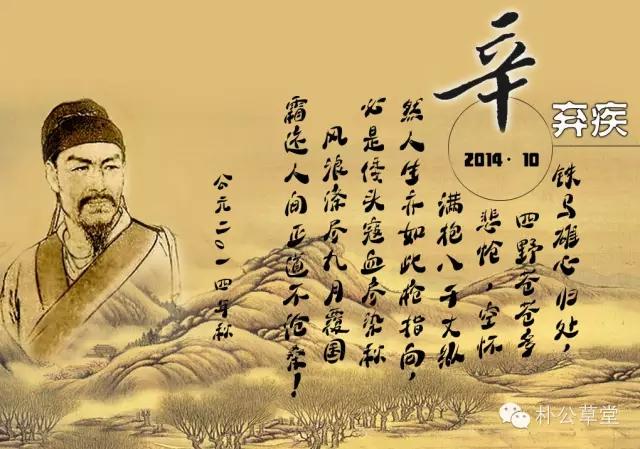 辛
弃疾
2014·10
铁马雄心归处，
四野苍苍
悲怆，空怀
满抱八千丈纵
然人生亦如此枪指向，
必是倭头寇血染秋
风浪涤尽九月覆国
霜人间正道不沧桑！
公元二〇一四年秋
朴公草堂